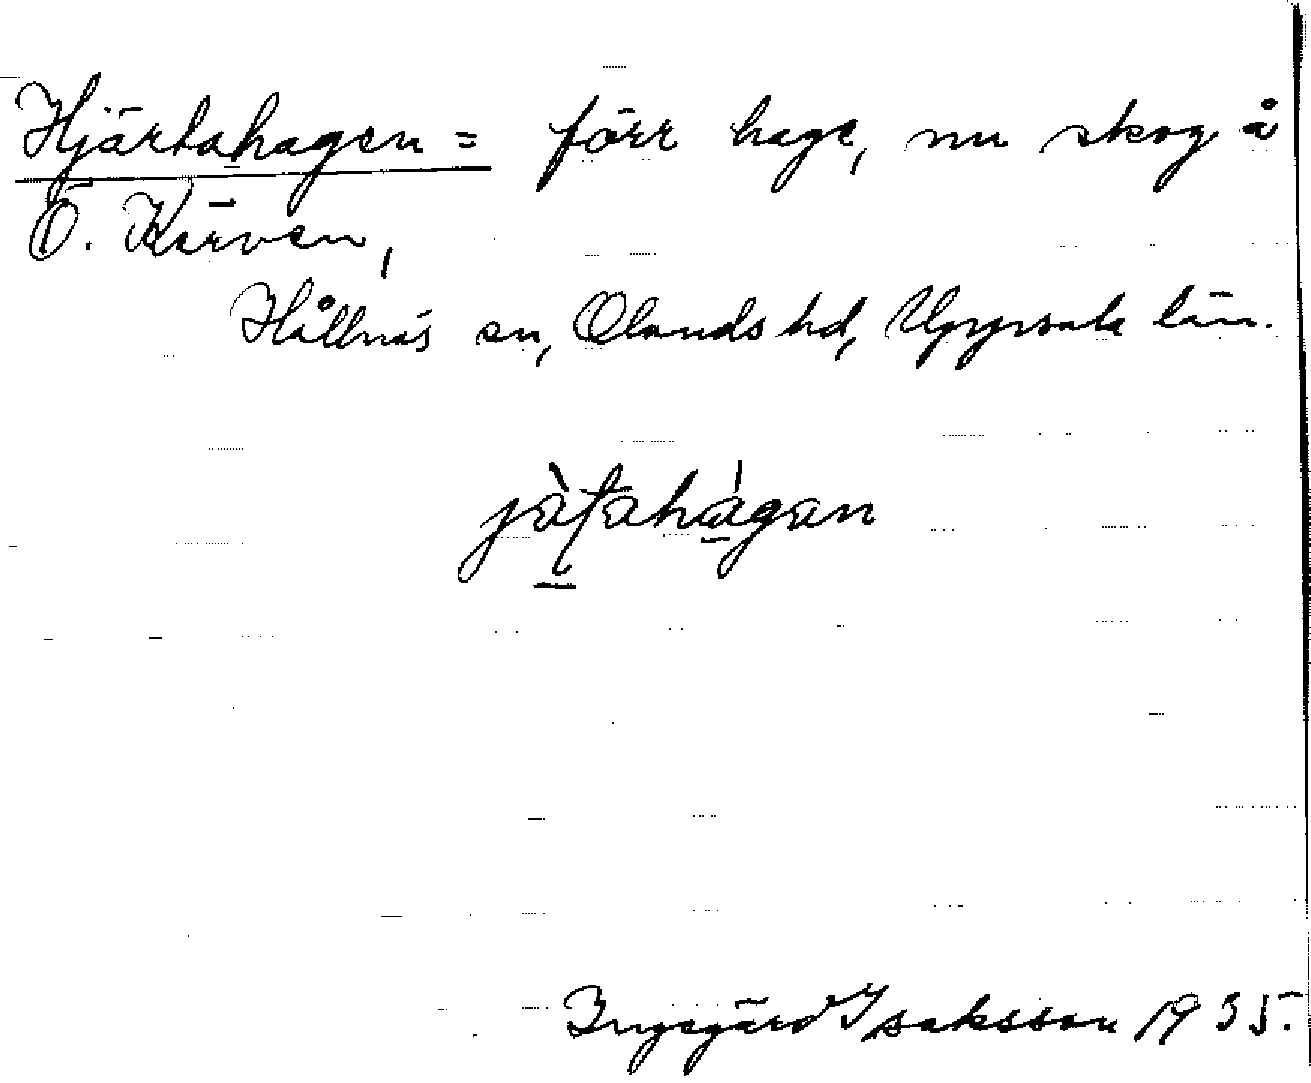 Hjärtahagen = förr hage, nu skog å
Ö. Kärven,
Hållnäs sn, Olands hd, Uppsala län.
jàṭahágan
Ingegärd Isaksson 1935.